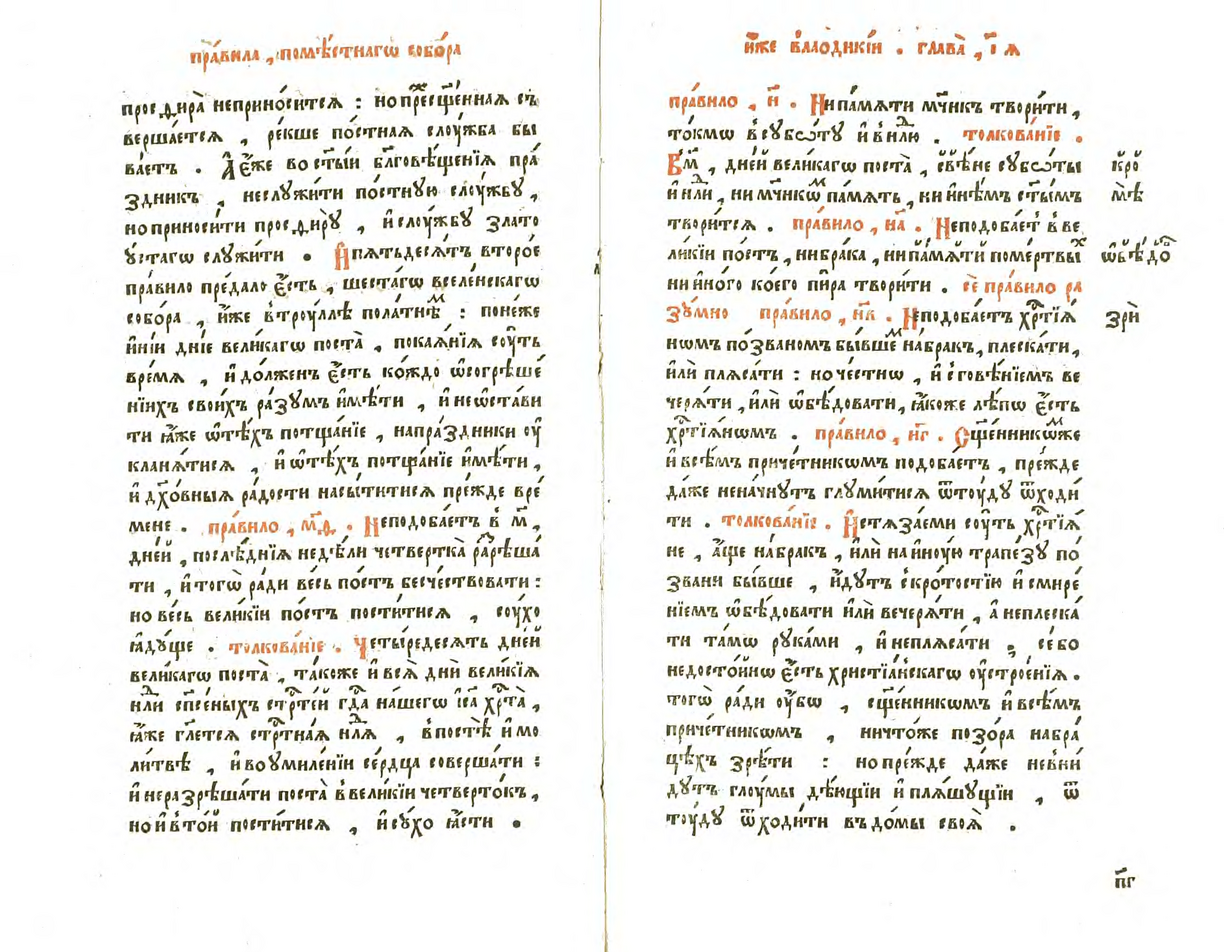 пра́вила , помѣ́стнагѡ собо́ра
просѳира̀ неприно́ситсѧ : но прⷤесщ҃е́ннаѧ съ
верша́етсѧ , ре́кше по́стнаѧ слоу́жба бы
ва́етъ . А҆́ е҆́же во ст҃ы́и бл҃гове́щенїѧ пра́
здникъ , неслужи́ти по́стную слоу́жбу ,
но приноси́ти просѳиру̀ , и҆ слоу́жбу злато
у́стагѡ служи́ти .   И҆ пѧтьдесѧ́тъ второ́е
пра́вило преда́ло є҆́сть , шеста́гѡ вселе́нскагѡ
собо́ра , и҆́же в троу́ллѣ пола́тнѣмъ : поне́же
и҆ні́и дні́е вели́кагѡ поста̀ , покаѧ́нїѧ соу́ть
вре́мѧ , и҆ до́лженъ є҆́сть ко́ждо ѡ҆ согрѣше́
нїихъ свои́хъ ра́зумъ и҆мѣ́ти , и҆ неѡ҆ста́ви
ти ꙗ҆́же ѡ҆ тѣ́хъ потща́нїе , на пра́здники оу҆
кланѧ́тисѧ , и҆ ѡ҆ тѣ́хъ потща́нїе и҆мѣ́ти ,
и҆ дх҃о́вныѧ ра́дости насы́титисѧ пре́жде вре́
мене . пра́вило , м҃ѳ . Неподоба́етъ в м҃ ,
дне́й , послѣ́днїѧ недѣ́ли четвертка̀ разрѣша́
ти , и҆ тогѡ̀ ради ве́сь по́стъ бесче́ствовати :
но ве́сь вели́кїи по́стъ пости́тисѧ , соу́хо
ꙗ҆ду́ще . толкова́нїе . Четы́редесѧть дне́й
вели́кагѡ поста̀ , та́коже и҆ всѧ̀ днѝ вели́кїѧ
нⷣли сп҃се́ныхъ стрⷭ҇те́й гдⷭ҇а на́шегѡ і҆с҃а хрⷭ҇та̀ ,
ꙗ҆́же гл҃етсѧ стрⷭ҇тна́ѧ нⷣлѧ , в постѣ̀ и҆ мо
ли́твѣ , и҆ во умиле́нїи се́рдца соверша́ти :
и҆ неразрѣша́ти поста̀ в вели́кїи четверто́къ ,
но и҆ в то́й пости́тисѧ , и҆ су́хо ꙗ҆́сти .
и҆́же в лаодикі́и . глава̀ , і҃ ѧ
пра́вило , н҃ . Ни па́мѧти мч҃нкъ твори́ти ,
то́кмѡ в субѡ́ту и҆ в нⷣлю . толкова́нїе .
В м҃ , дне́й вели́кагѡ поста̀ , свѣ́не субѡ́ты
кро
и҆ нⷣли , ни мч҃нкѡмъ па́мѧть , ни и҆нѣ́мъ ст҃ы́мъ
мѣ
твори́тсѧ . пра́вило , н҃а . Неподоба́етъ в ве
ли́кїи по́стъ , ни бра́ка , ни па́мѧти по ме́ртвыхъ
ѡ҆бѣ́до
ни и҆но́го ко́его пи́ра твори́ти . се́ пра́вило ра
зу́мно   пра́вило , н҃в . Неподоба́етъ хрⷭ҇тїѧ́
зрѝ
нѡмъ по́званомъ бы́вшемъ на бра́къ , плеска́ти ,
и҆лѝ плѧса́ти : но че́стнѡ , и҆ с говѣ́нїемъ ве
черѧ́ти , и҆лѝ ѡ҆бѣ́довати , ꙗ҆́коже лѣ́пѡ є҆́сть
хрⷭ҇тїѧ́нѡмъ . пра́вило , н҃г . Сщ҃е́нникѡмже
и҆ всѣ́мъ приче́тникѡмъ подоба́етъ , пре́жде
да́же нена́чнутъ глуми́тисѧ ѿтоу́ду ѿходи́
ти . толкова́нїе . И҆стѧза́еми соу́ть хрⷭ҇тїѧ́
не , а҆́ще на бра́къ , и҆лѝ на и҆ноу́ю трапе́зу по́
звани бы́вше , и҆́дутъ с кро́тостїю и҆ смире́
нїемъ ѡ҆бѣ́довати и҆лѝ вечерѧ́ти , а҆ неплеска́
ти та́мѡ рука́ми , и҆ неплѧса́ти , се́ бо
недосто́йнѡ є҆́сть христїа́нскагѡ оу҆строе́нїѧ .
тогѡ̀ ради оу҆́бѡ , сщ҃е́нникѡмъ и҆ всѣ́мъ
приче́тникѡмъ , ничто́же позо́ра на бра́
цѣхъ зрѣ́ти : но пре́жде да́же невни́
дутъ глоу́мы дѣ́ющїи и҆ плѧ́шущїи , ѿ
тоу́ду ѿходи́ти въ до́мы своѧ̀ .
п҃г